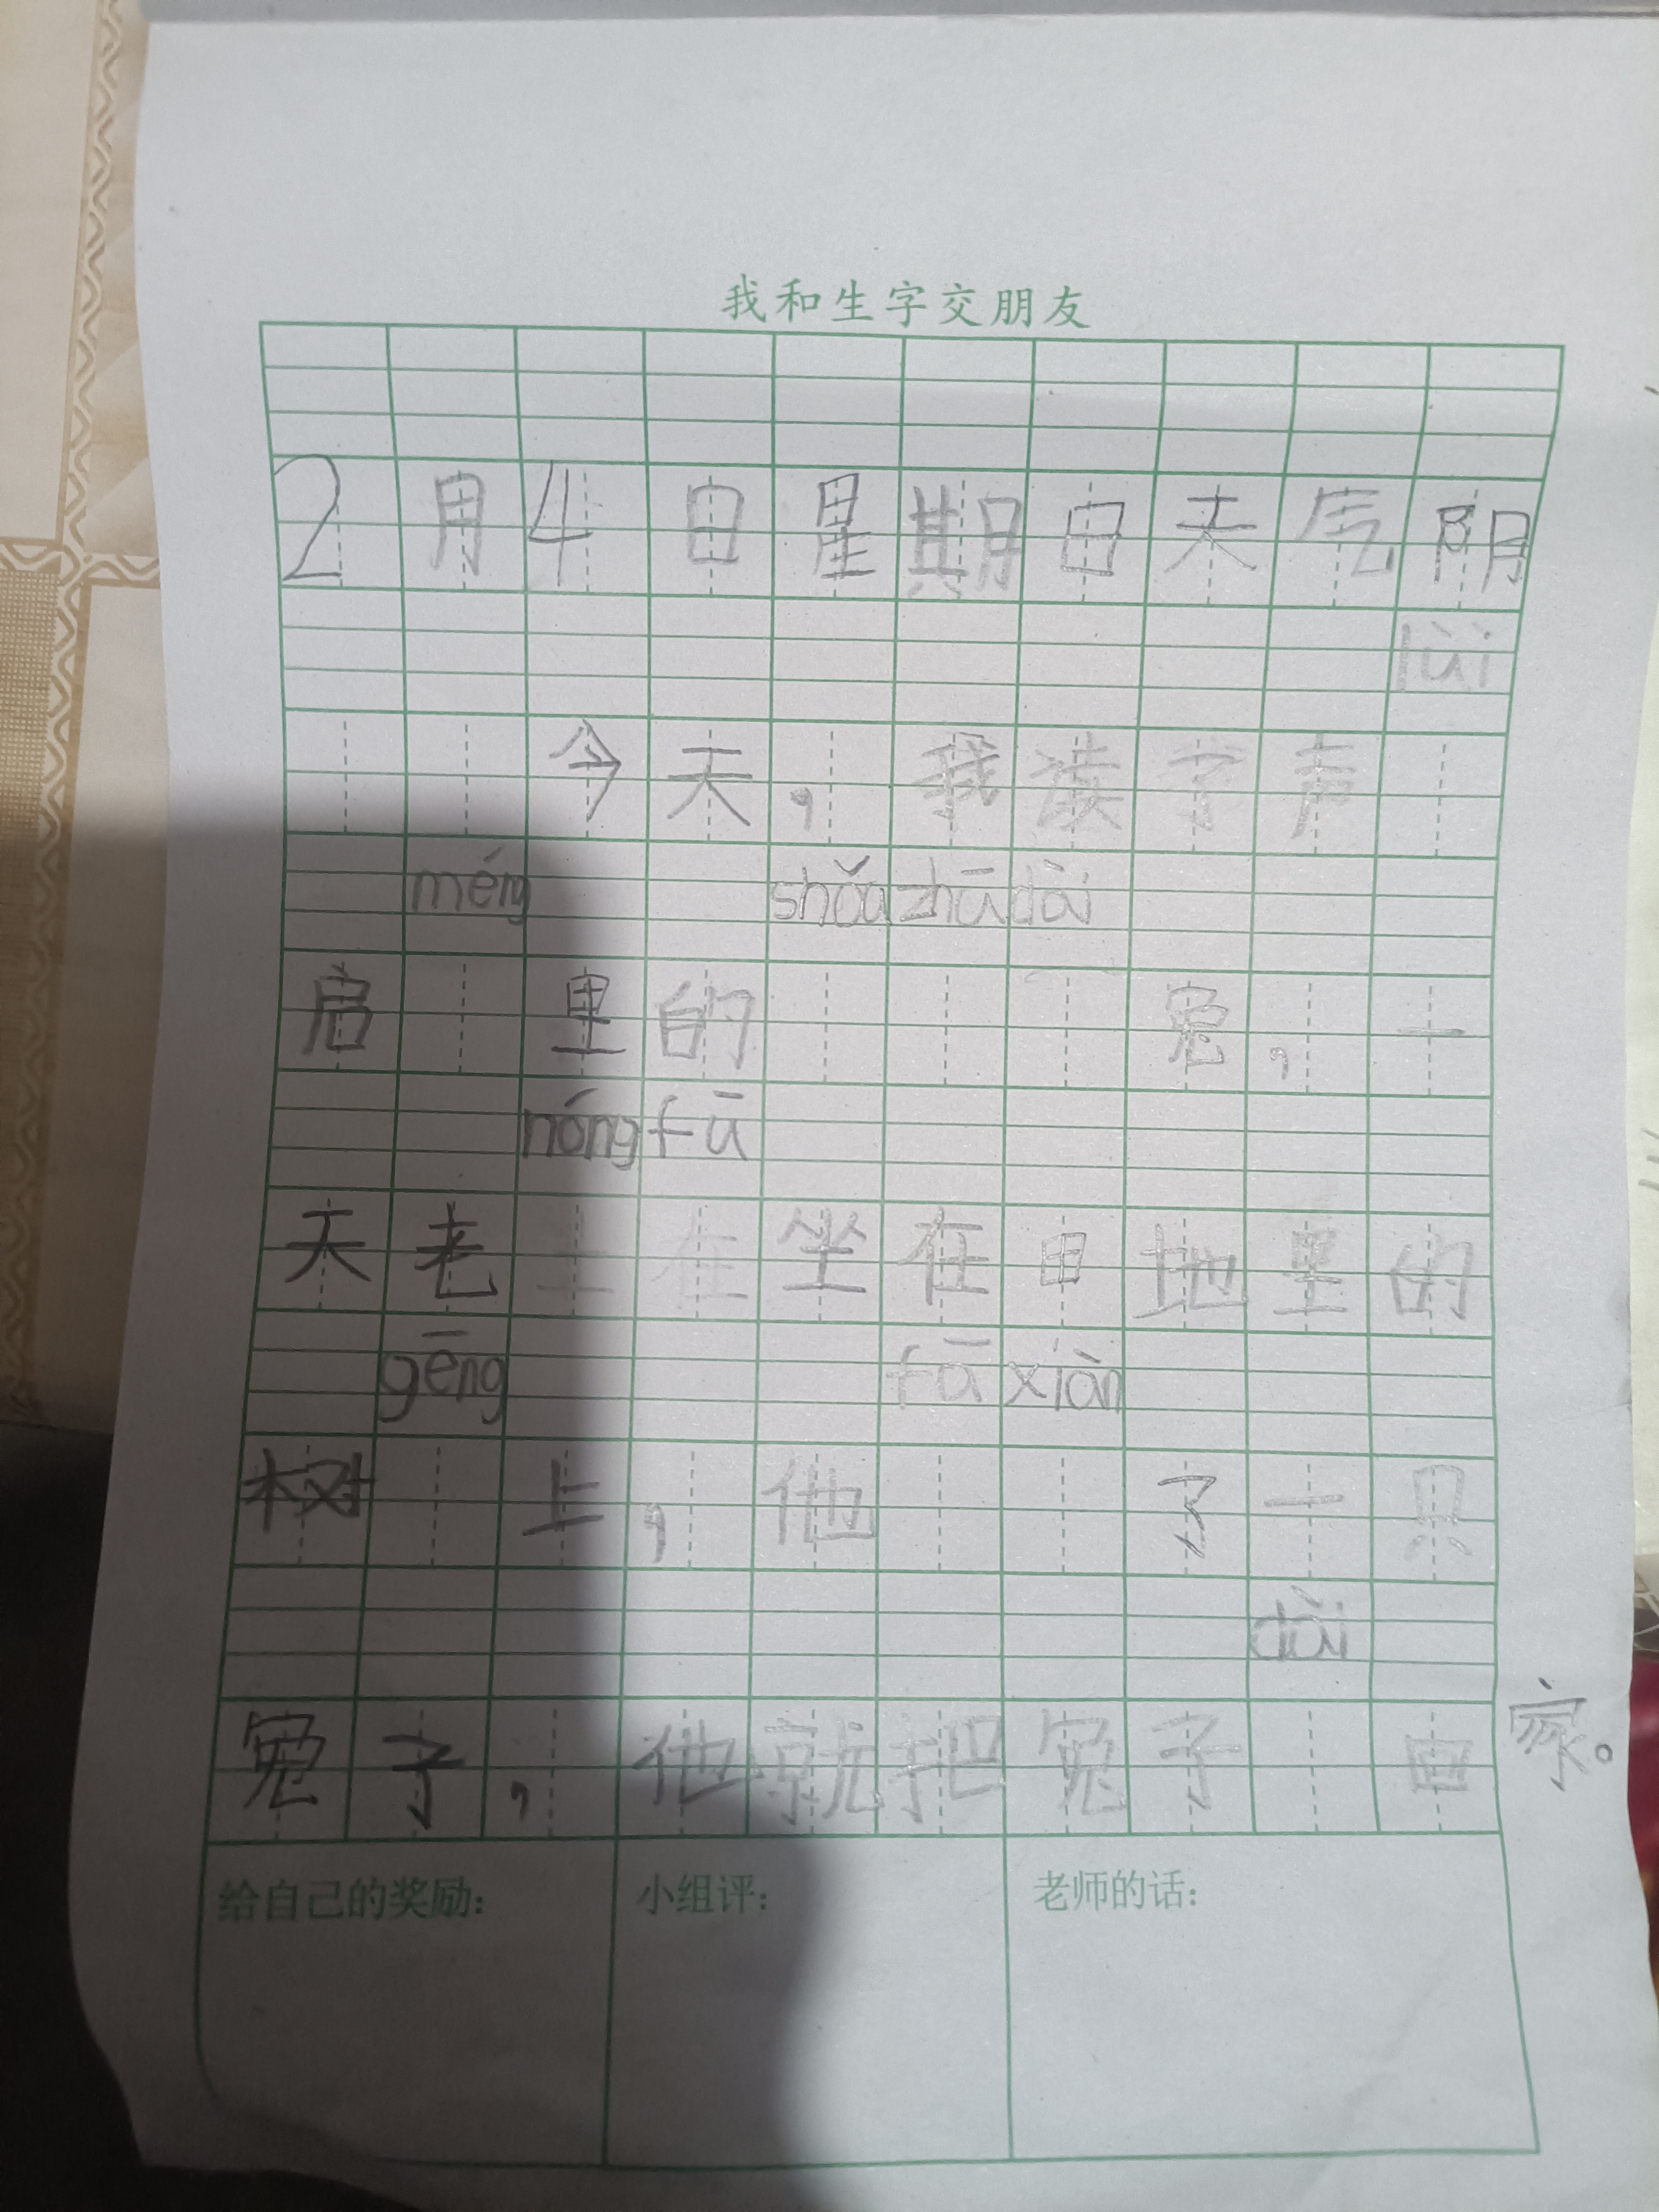 我和生字交朋友
2月4日星期日天气阴
lǜi
今天，我读学声
méng shǒu zhū dài
启里的兔，一
nóng fū
天老坐在田地里的
gēng fā xiàn
树上，他了一只
dài
兔子，他就把兔子回家。
给自己的奖励：
小组评：
老师的话：